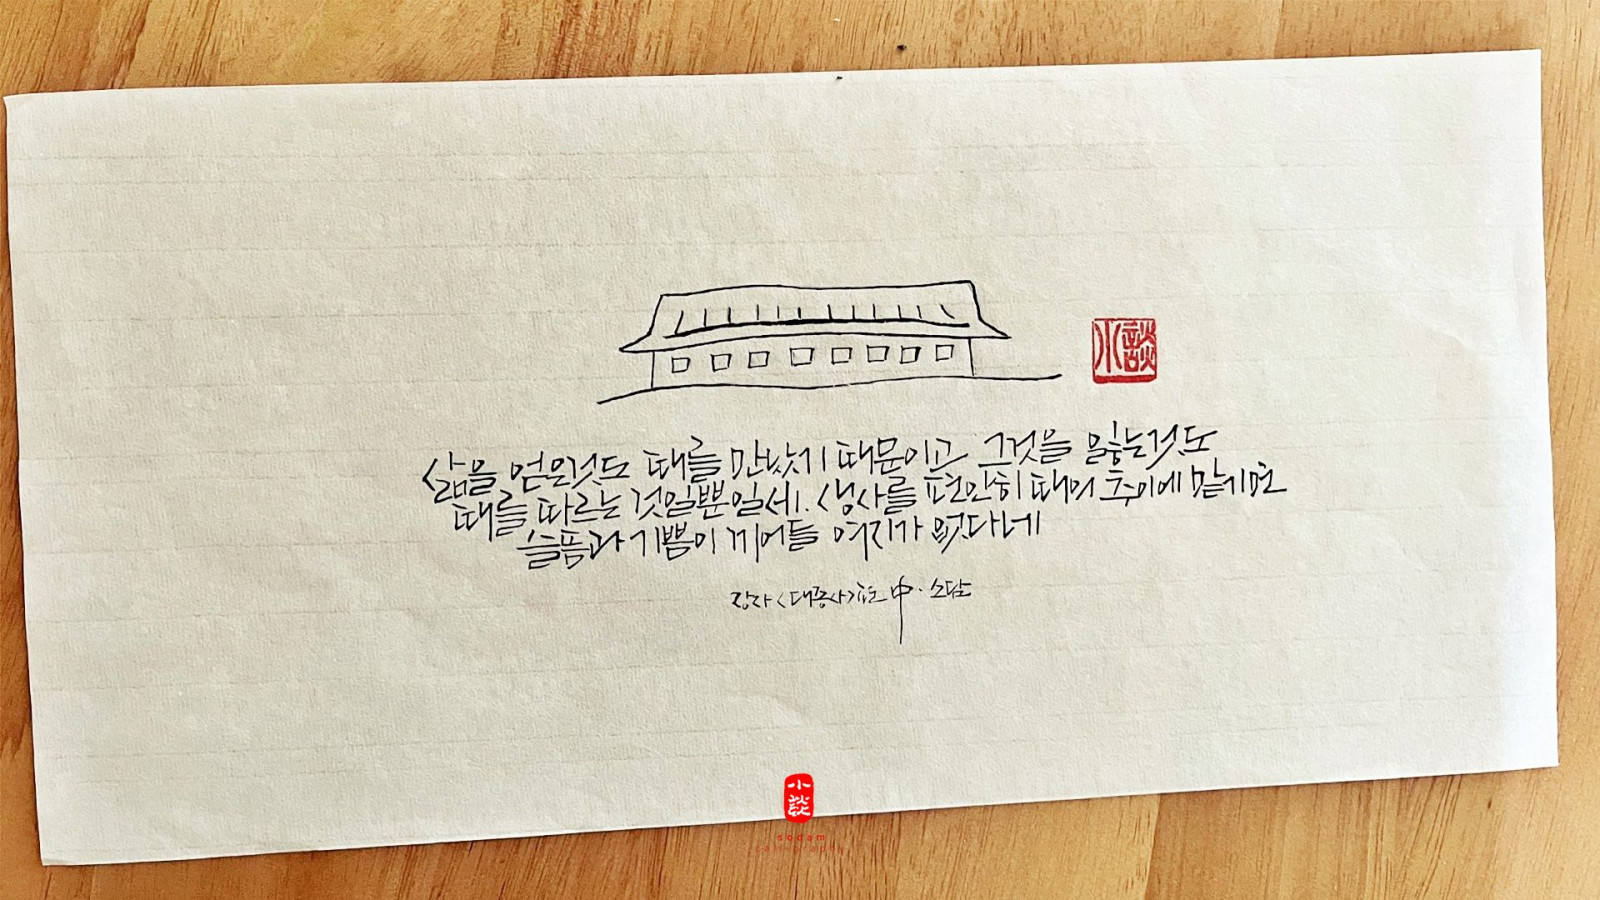 小談
삶을 얻은것도 때를 만났기 때문이고 그것을 잃는것도
때를 따르는 것일뿐일세. 생사를 편안히 때의 추이에 맡기면
슬픔과 기쁨이 끼어들 여지가 없다네
장자<대종사>편 中 · 소담
小談
sodam
calligraphy